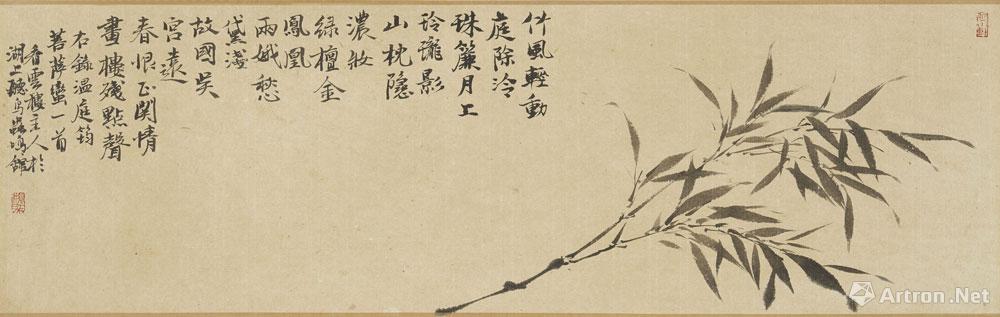 竹風輕動
庭除冷
珠簾月上
玲瓏影
山枕隱
濃妝
綠檀金
鳳凰
兩娥愁
黛淺
故國吳
宮遠
春恨正關情
畫樓殘點聲
右錄溫庭筠
菩薩蠻一首
香雲樓主人於
湖上聽鳥蟲鳴館
Artron.Net